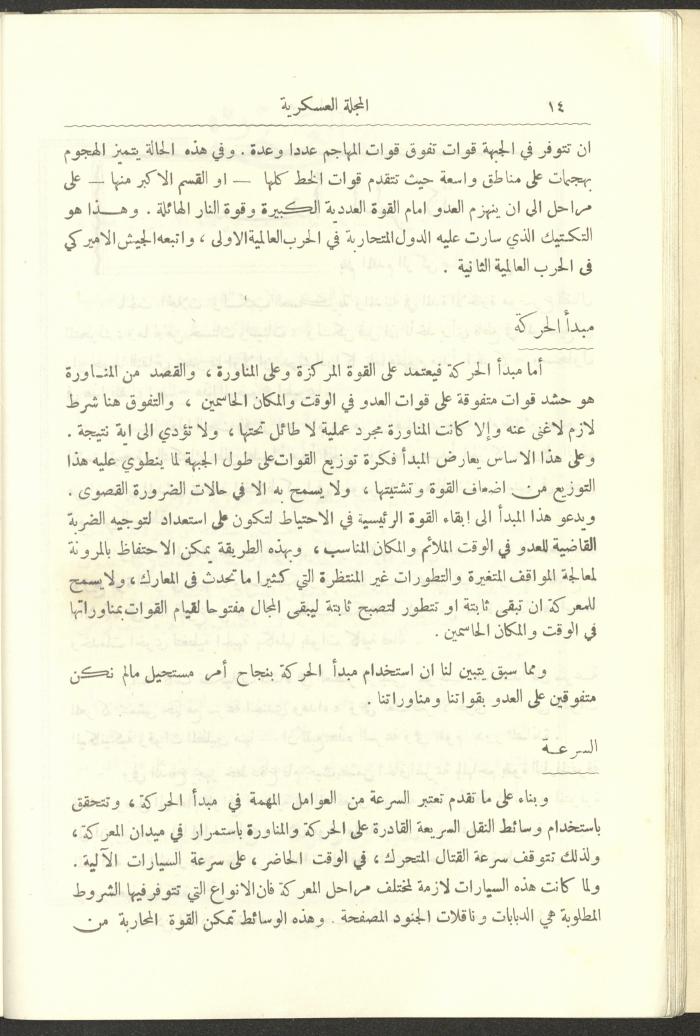 ١٤
المجلة العسكرية
ان تتوفر في الجبهة قوات تفوق قوات المهاجم عددا وعدة . وفي هذه الحالة يتميز الهجوم
بهجمات على مناطق واسعة حيث تتقدم قوات الخط كلها — او القسم الاكبر منها — على
مراحل الى ان ينهزم العدو امام القوة العددية الكبيرة وقوة النار الهائلة . وهذا هو
التكتيك الذي سارت عليه الدول المتحاربة في الحرب العالمية الاولى ، واتبعه الجيش الاميركي
في الحرب العالمية الثانية .
مبدأ الحركة
أما مبدأ الحركة فيعتمد على القوة المركزة وعلى المناورة ، والقصد من المناورة
هو حشد قوات متفوقة على قوات العدو في الوقت والمكان الحاسمين ، والتفوق هنا شرط
لازم لاغنى عنه وإلا كانت المناورة مجرد عملية لا طائل تحتها ، ولا تؤدي الى اية نتيجة .
وعلى هذا الاساس يعارض المبدأ فكرة توزيع القوات على طول الجبهة لما ينطوي عليه هذا
التوزيع من اضعاف القوة وتشتيتها ، ولا يسمح به الا في حالات الضرورة القصوى .
ويدعو هذا المبدأ الى إبقاء القوة الرئيسية في الاحتياط لتكون على استعداد لتوجيه الضربة
القاضية للعدو في الوقت الملائم والمكان المناسب ، وبهذه الطريقة يمكن الاحتفاظ بالمرونة
لمعالجة المواقف المتغيرة والتطورات غير المنتظرة التي كثيرا ما تحدث في المعارك ، ولا يسمح
للمعركة ان تبقى ثابتة او تتطور لتصبح ثابتة ليبقى المجال مفتوحا لقيام القوات بمناوراتها
في الوقت والمكان الحاسمين .
ومما سبق يتبين لنا ان استخدام مبدأ الحركة بنجاح أمر مستحيل مالم نكن
متفوقين على العدو بقواتنا ومناوراتنا .
السرعة
وبناء على ما تقدم تعتبر السرعة من العوامل المهمة في مبدأ الحركة ، وتتحقق
باستخدام وسائط النقل السريعة القادرة على الحركة والمناورة باستمرار في ميدان المعركة ،
ولذلك تتوقف سرعة القتال المتحرك ، في الوقت الحاضر ، على سرعة السيارات الآلية .
ولما كانت هذه السيارات لازمة لمختلف مراحل المعركة فان الانواع التي تتوفر فيها الشروط
المطلوبة هي الدبابات وناقلات الجنود المصفحة . وهذه الوسائط تمكن القوة المحاربة من